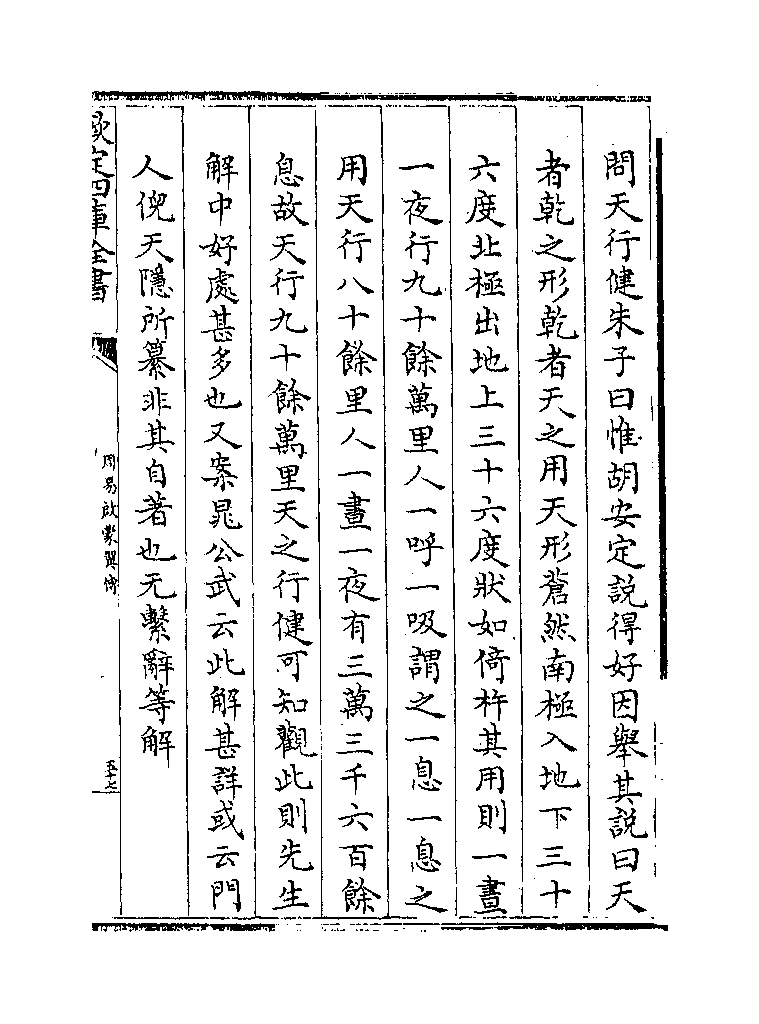 問天行健朱子曰惟胡安定説得好因舉其説曰天
者乾之形乾者天之用天形蒼然南極入地下三十
六度北極出地上三十六度狀如倚杵其用則一晝
一夜行九十餘萬里人一呼一吸謂之一息一息之
用天行八十餘里人一晝一夜有三萬三千六百餘
息故天行九十餘萬里天之行健可知觀此則先生
解中好處甚多也又案晁公武云此解甚詳或云門
人倪天隱所纂非其自著也无繫辭等解
欽定四庫全書
周易啟蒙翼傳
五十七